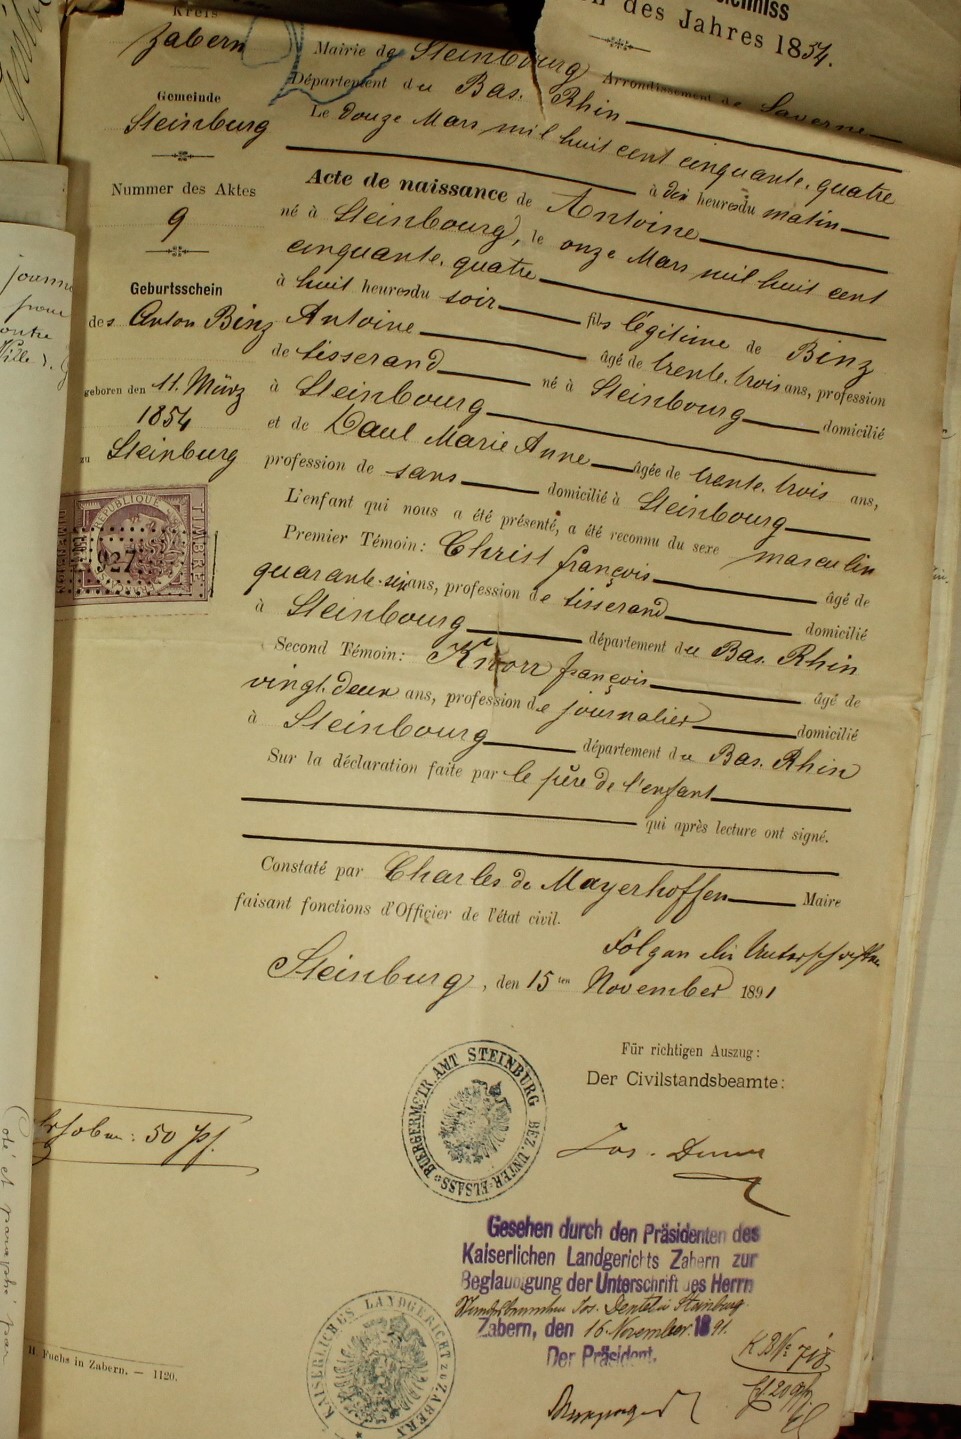 Kreis
Zabern
Gemeinde
Steinburg
Nummer des Aktes
9
Geburtsschein
des Anton Binz
geboren den 11. März
1854
zu Steinburg
RÉPUBLIQUE
TIMBRE
927
des Jahres 1854.
Mairie de Steinbourg Arrondissement de Saverne
Département du Bas. Rhin
Le douze Mars mil huit cent cinquante. quatre
à dix heures du matin
Acte de naissance de Antoine
né à Steinbourg, le onze Mars mil huit cent
cinquante. quatre
à huit heures du soir fils légitime de Binz
Antoine âgé de trente. trois ans, profession
de tisserand né à Steinbourg
à Steinbourg domicilié
et de Daul Marie Anne âgée de trente. trois ans,
profession de sans domicilié à Steinbourg
L'enfant qui nous a été présenté, a été reconnu du sexe masculin
Premier Témoin: Christ françois âgé de
quarante-six ans, profession de tisserand domicilié
à Steinbourg département du Bas. Rhin
Second Témoin: Knorr françois âgé de
vingt. deux ans, profession de journalier domicilié
à Steinbourg département du Bas. Rhin
Sur la déclaration faite par le père de l'enfant
qui après lecture ont signé.
Constaté par Charles de Mayerhoffen Maire
faisant fonctions d'Officier de l'état civil.
Folgen die Unterschriften
Steinburg, den 15ten November 1891
Für richtigen Auszug:
Der Civilstandsbeamte:
BUERGERMSTR. AMT STEINBURG BEZ. UNTER-ELSASS
Erhoben: 50 Pf.
Gesehen durch den Präsidenten des
Kaiserlichen Landgerichts Zabern zur
Beglaubigung der Unterschrift des Herrn
Jos. Steinburg
Zabern, den 16. November. 1891.
Der Präsident.
KAISERLICHES LANDGERICHT zu ZABERN
K B No 718
H. Fuchs in Zabern. — 1120.